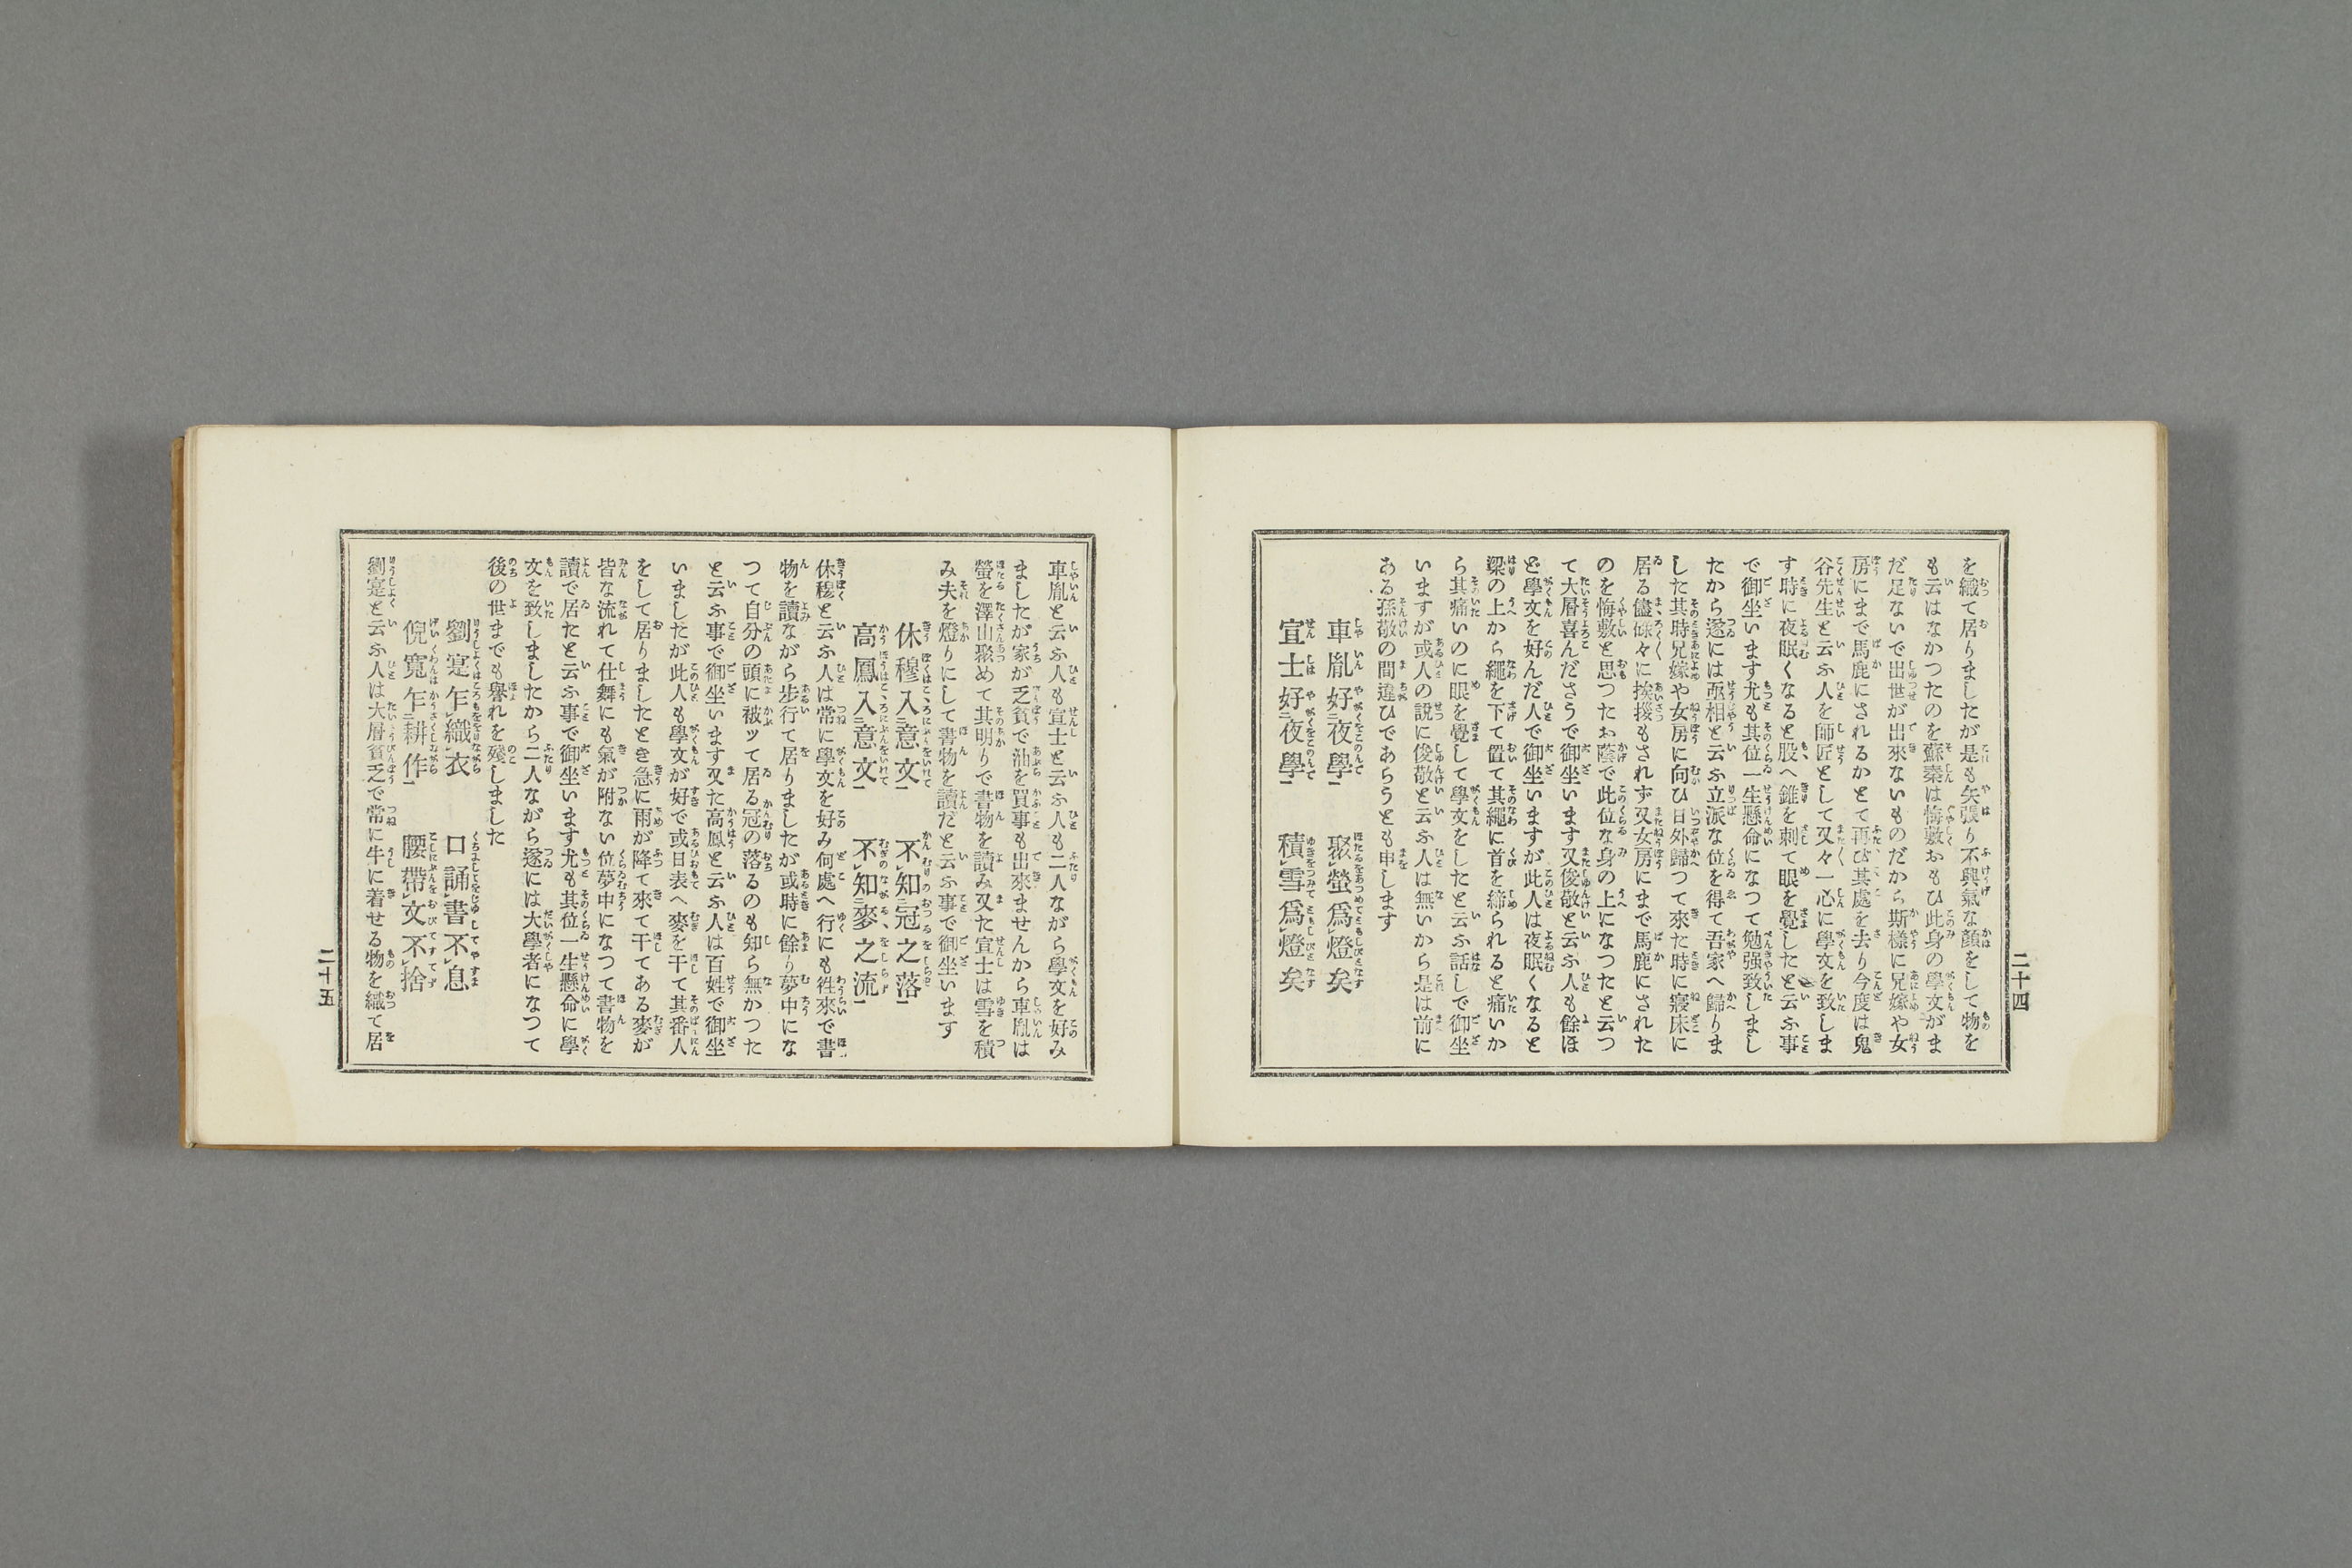 を織て居りましたが是も矢張り不興氣な顔をして物を
も云はなかつたのを蘇秦は悔敷おもひ此身の學文がま
だ足ないで出世が出來ないものだから斯樣に兄嫁や女
房にまで馬鹿にされるかとて再び其處を去り今度は鬼
谷先生と云ふ人を師匠として又々一心に學文を致しま
す時に夜眠くなると股へ錐を刺て眼を覺したと云ふ事
で御坐います尤も其位一生懸命になつて勉强致しまし
たから遂には丞相と云ふ立派な位を得て吾家へ歸りま
した其時兄嫁や女房に向ひ日外歸つて來た時に寢床に
居る儘碌々に挨拶もされず又女房にまで馬鹿にされた
のを悔敷と思つたお蔭で此位な身の上になつたと云つ
て大層喜んださうで御坐います又俊敬と云ふ人も餘ほ
ど學文を好んだ人で御坐いますが此人は夜眠くなると
梁の上から繩を下て置て其繩に首を締られると痛いか
ら其痛いのに眼を覺して學文をしたと云ふ話しで御坐
いますが或人の說に俊敬と云ふ人は無いから是は前に
ある孫敬の間違ひであらうとも申します
車胤好夜學 聚螢爲燈矣
宣士好夜學 積雪爲燈矣
二十四
車胤と云ふ人も宣士と云ふ人も二人ながら學文を好み
ましたが家が乏貧で油を買事も出來ませんから車胤は
螢を澤山聚めて其明りで書物を讀み又た宣士は雪を積
み夫を燈りにして書物を讀だと云ふ事で御坐います
休穆入意文 不知冠之落
高鳳入意文 不知麥之流
休穆と云ふ人は常に學文を好み何處へ行にも徃來で書
物を讀ながら步行て居りましたが或時に餘り夢中にな
つて自分の頭に被ツて居る冠の落るのも知ら無かつた
と云ふ事で御坐います又た高鳳と云ふ人は百姓で御坐
いましたが此人も學文が好で或日表へ麥を干て其番人
をして居りましたとき急に雨が降て來て干てある麥が
皆な流れて仕舞にも氣が附ない位夢中になつて書物を
讀で居たと云ふ事で御坐います尤も其位一生懸命に學
文を致しましたから二人ながら遂には大學者になつて
後の世までも譽れを殘しました
劉寔乍織衣 口誦書不息
倪寬乍耕作 腰帶文不捨
劉寔と云ふ人は大層貧乏で常に牛に着せる物を織て居
二十五